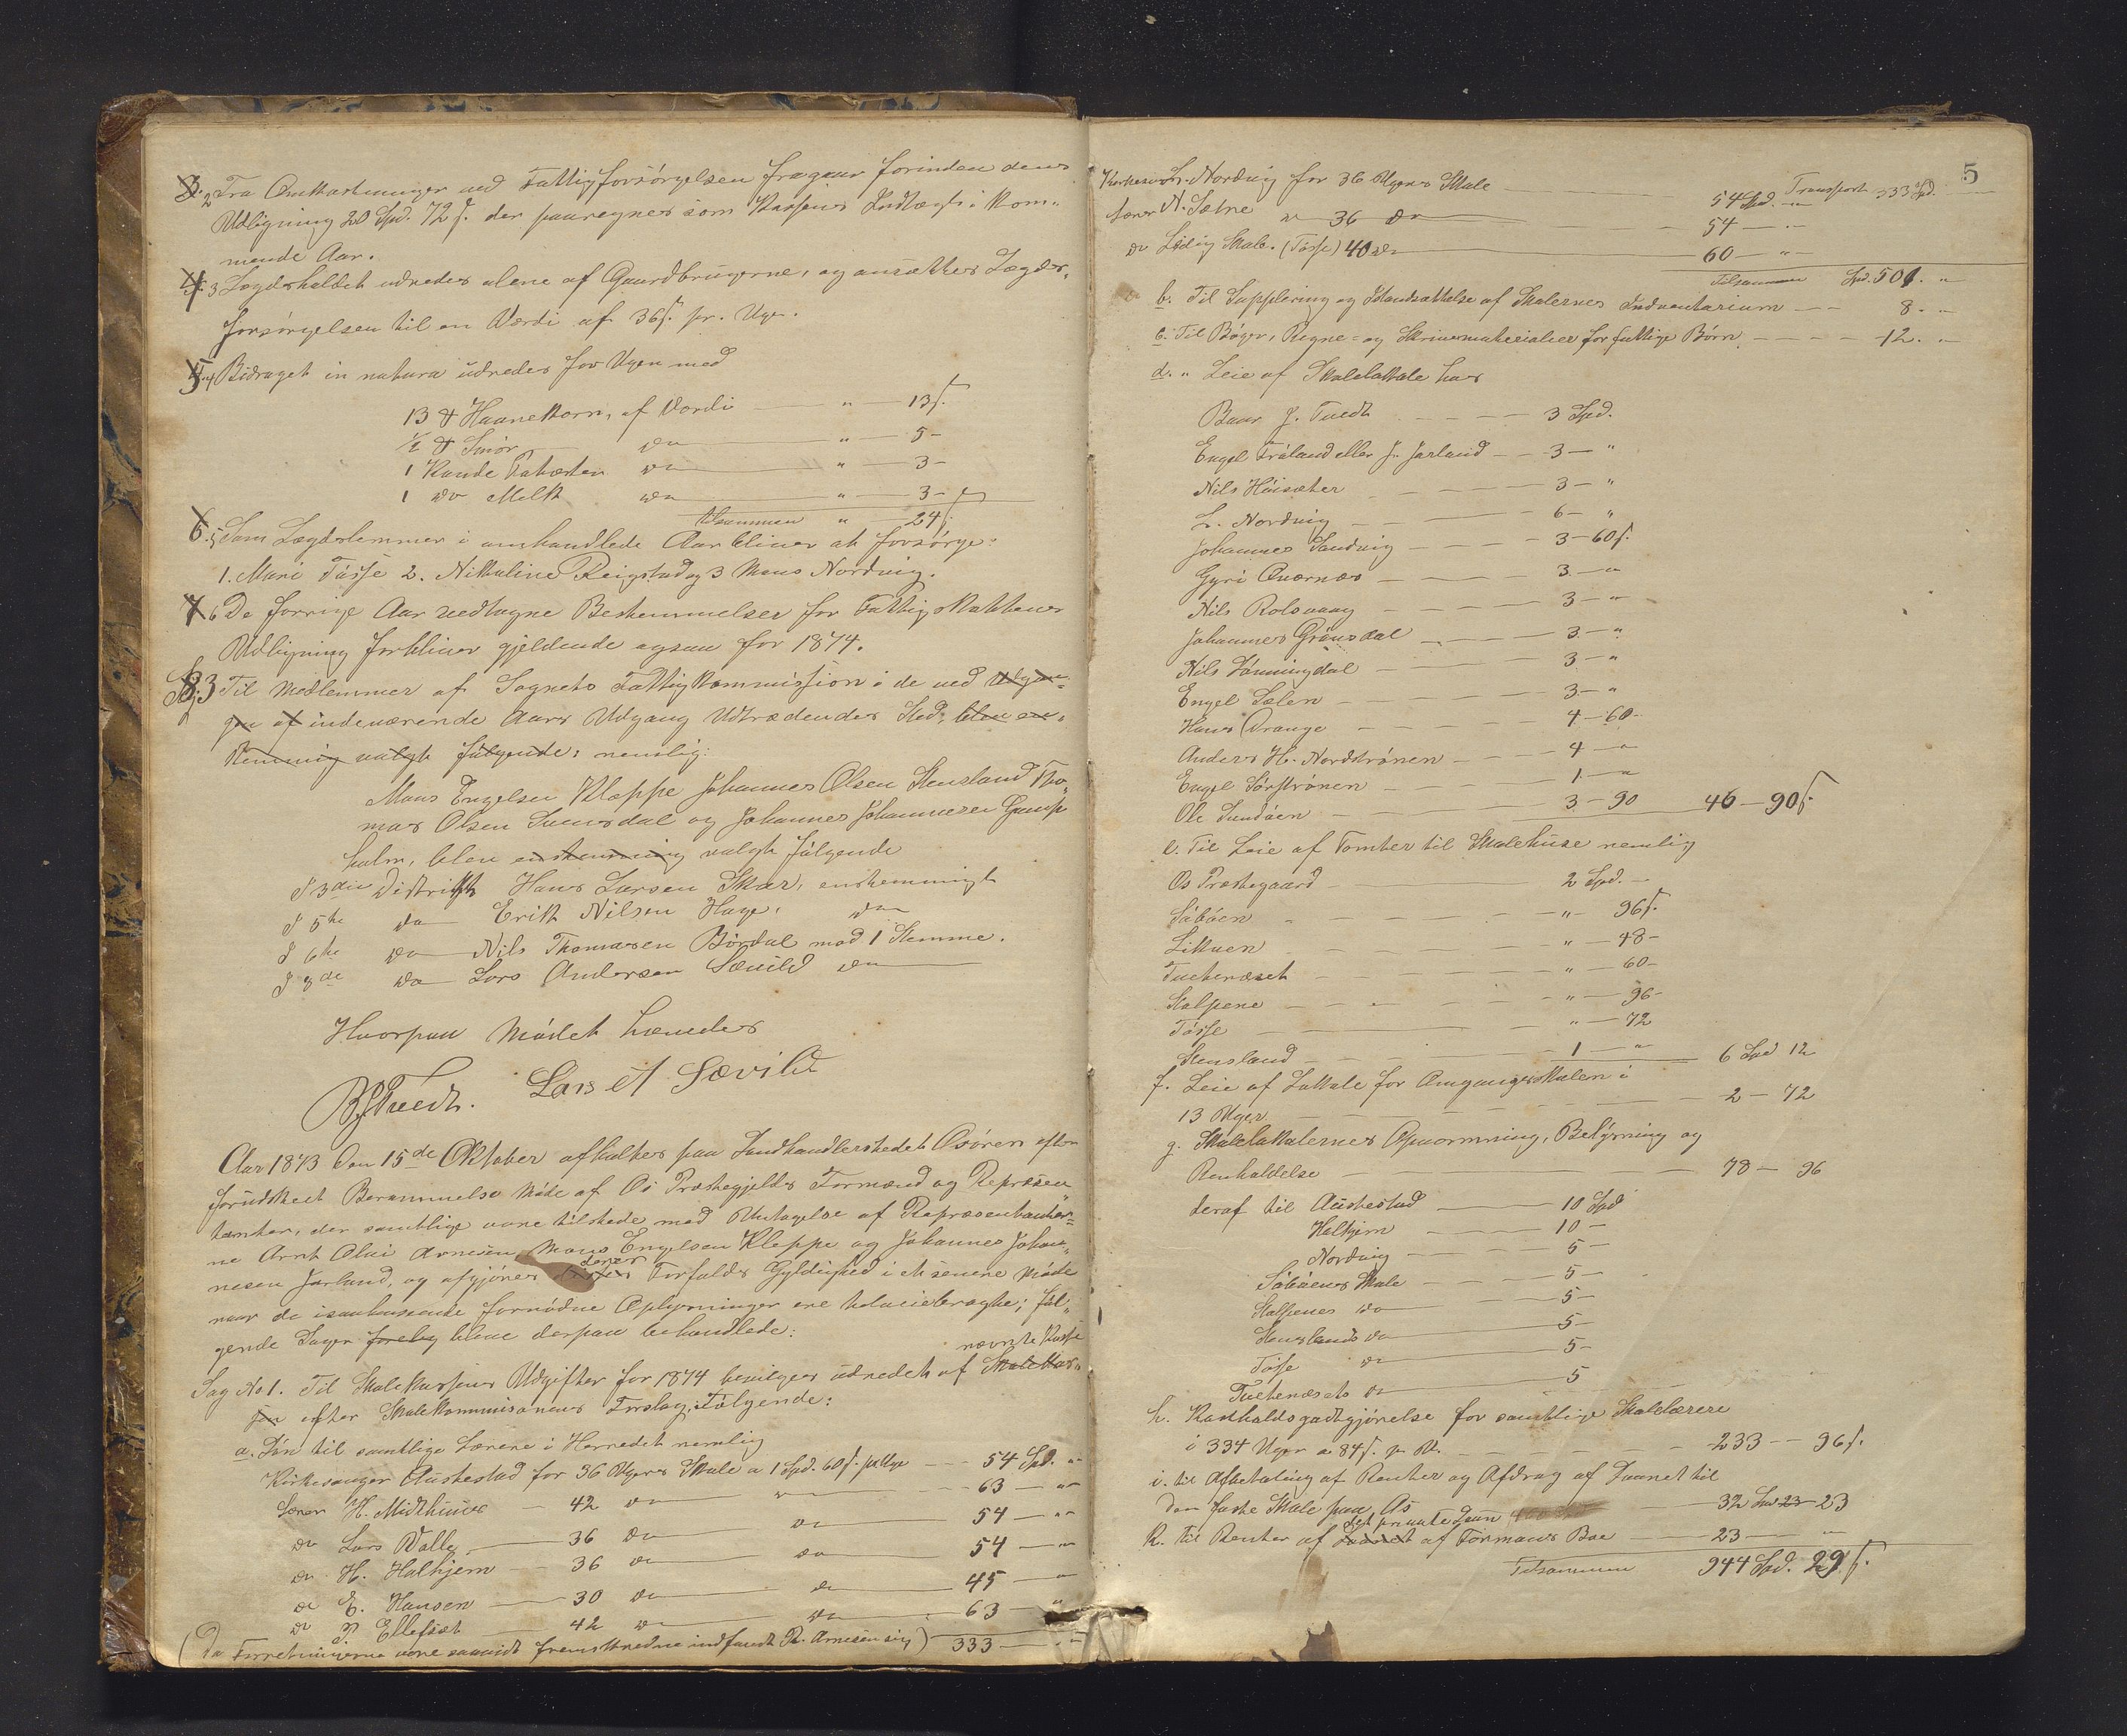 2 Fra Omkostninger ved Fattigforsørgelsen fragaar forinden dens
Udligning 20 Spd. 72 s. der paaregnes som Kassens Indtægt i kom-
mende Aar.
3 Lægdsholdet udredes alene af Gaardbrugerne, og ansættes Lægds-
forsørgelsen til en Værdi af 36 s. pr. Uge.
4 Bidraget in natura udredes for Ugen med
13 ℔ Havrekorn, af Værdi — " — 13 s.
1/2 ℔ Smør do — " — 5 -
1 Kande Poteter do — " — 3 -
1 do Melk do — " — 3 -
tilsammen " 24 s.
5 Som Lægdslemmer i omhandlede Aar bliver at forsørge:
1. Mari Tøsse 2. Nikoline Reigstad og 3 Mons Nordvig.
6 De forrige Aar vedtagne Bestemmelser for Fattigskattens
Udligning forbliver gjeldende ogsaa for 1874.
S. 3 Til Medlemmer af Sognets Fattigkommission i de ved Udgan-
gen af indeværende Aars Udgang Udtrædendes Sted, blev en-
stemmig valgt følgende: nemlig:
Mons Engelsen Kleppe Johannes Olsen Stensland Tho-
mas Olsen Svensdal og Johannes Johannesen Gaasp
holm, blev enstemmig valgt følgende
I 3die Distrikt Hans Larsen Skar, enstemmigt
I 5te do Erik Nilsen Hage, do
I 6te do Nils Thomasen Børdal med 1 Stemme.
I 8de do Lars Andersen Sævild do
Hvorpaa Mødet hævedes
B J Tvedt. Lars A Sævild
Aar 1873 den 15de Oktober afholtes paa Landhandlerstedet Osøren efter
forudskeet Berammelse Møde af Os Præstegjelds Formænd og Repræsen
tanter, der samtlige vare tilstede med Undtagelse af Repræsentanter-
ne Arnt Olai Arnesen, Mons Engelsen Kleppe og Johannes Johan-
nesen Jarland, og afgjøres deres Forfalds Gyldighed i et senere Møde
naar de isaahenseende fornødne Oplysninger ere tilveiebragte; føl-
gende Sager foreløg bleve derpaa behandlede:
nævnte Kasse
Sag No 1. Til Skolekassens Udgifter for 1874 bevilges udredet af Skolekas-
sen efter Skolekommissionens Forslag, Følgende:
a. Løn til samtlige Lærere i Herredet nemlig
Kirkesanger Austestad for 36 Ugers Skole a 1 Spd. 60 s. pr Uge — 54 Spd. "
Lærer H. Midthuus — 42 do — do — 63 — "
do Lars Valle — 36 do — do — 54 — "
do H. Halhjem — 36 do — do — 54 — "
do E. Hansen — 30 do — do — 45 — "
do P. Ellefsæt — 42 do — do — 63 — "
(Da Forretningerne vare saavidt fremskredne indfandt R. Arnesen sig) 333 — "
5
Transport 333 Spd.
Kirkesanger L. Nordvig for 36 Ugers Skole — 54 Spd. "
Lærer N. Sætre do 36 do — 54 — "
do Ledig Skole. (Tøsse) 40 do — 60 — "
Tilsammen Spd. 501. "
b. Til Supplering og Istandsættelse af Skolernes Inventarium — 8. "
c. Til Bøger, Regne- og Skrivematerialier for fattige Børn — 12. "
d. " Leie af Skolelokale hos
Baar J. Tvedt — 3 Spd.
Engel Frøland eller J. Jarland — 3 — "
Nils Høisæter — 3 — "
L. Nordvig — 6 — "
Johannes Sandvig — 3 — 60 s.
Gyri Qvernæs — 3 — "
Nils Rolsvaag — 3 — "
Johannes Grønsdal — 3 — "
Nils Lønningdal — 3 — "
Engel Sælen — 3 — "
Hans Drange — 4 — 60 -
Anders H. Nordstrønen — 4 — "
Engel Sørstrønen — 1 — "
Ole Sundøen — 3 — 90 46 — 90 s.
e. Til Leie af Tomter til Skolehuse nemlig
Os Præstegaard — 2 Spd. —
Søbøen — " — 96 s.
Littuen — " — 48 -
Tuctenæset — " — 60 -
Skalpene — " — 96 -
Tøsse — " — 72
Stensland — 1 — " 6 Spd 12
f. Leie af Lokale for Omgangsskolen i
13 Uger — 2 — 72
g. Skolelokalernes Opvarmning, Belysning og
Renholdelse — 78 — 96
deraf til Austestad — 10 Spd
Halhjem — 10 —
Nordvig — 5 —
Søbøens Skole — 5 —
Skalpenes do — 5 —
Stenslands do — 5 —
Tøsse do — 5 —
Tuctenæsets do — 5
h. Kostholdsgodtgjørelse for samtlige Skolelærere
i 334 Uger a 84 s. pr U. — 233 — 96 s.
i. til Afbetaling af Renter og Afdrag af Laanet til
den faste Skole paa Os — 32 Spd 23 23
det private Laan
k. Til Renter af Laanet af Formans Boe — 23 — "
Tilsammen 944 Spd. 29 s.